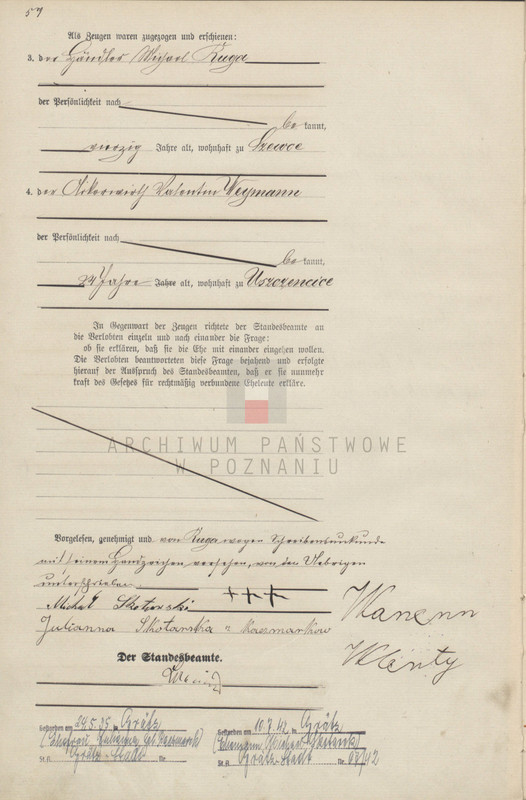 57
Als Zeugen waren zugezogen und erschienen:
3. der Händler Michael Ruga
der Persönlichkeit nach
be kannt,
vierzig Jahre alt, wohnhaft zu Szewce
4. der Ackerwirth Valentin Weymann
der Persönlichkeit nach
be kannt,
24 Jahre Jahre alt, wohnhaft zu Uszczencice
In Gegenwart der Zeugen richtete der Standesbeamte an
die Verlobten einzeln und nach einander die Frage:
ob sie erklären, daß sie die Ehe mit einander eingehen wollen.
Die Verlobten beantworteten diese Frage bejahend und erfolgte
hierauf der Ausspruch des Standesbeamten, daß er sie nunmehr
kraft des Gesetzes für rechtmäßig verbundene Eheleute erkläre.
ARCHIWUM PAŃSTWOWE
W POZNANIU
Vorgelesen, genehmigt und von Ruga wegen Schreibensunkunde
mit seinem Handzeichen versehen, von den Uebrigen
unterschrieben
+++
Michał Skotarski
Julianna Skotarska Kaczmarkow
Der Standesbeamte.
Gestorben am 29.5.35 in Grätz
St.A. Grätz-Stadt Nr.
Gestorben am 10.7.42 in Grätz
St.A. Grätz-Stadt Nr. 68/42